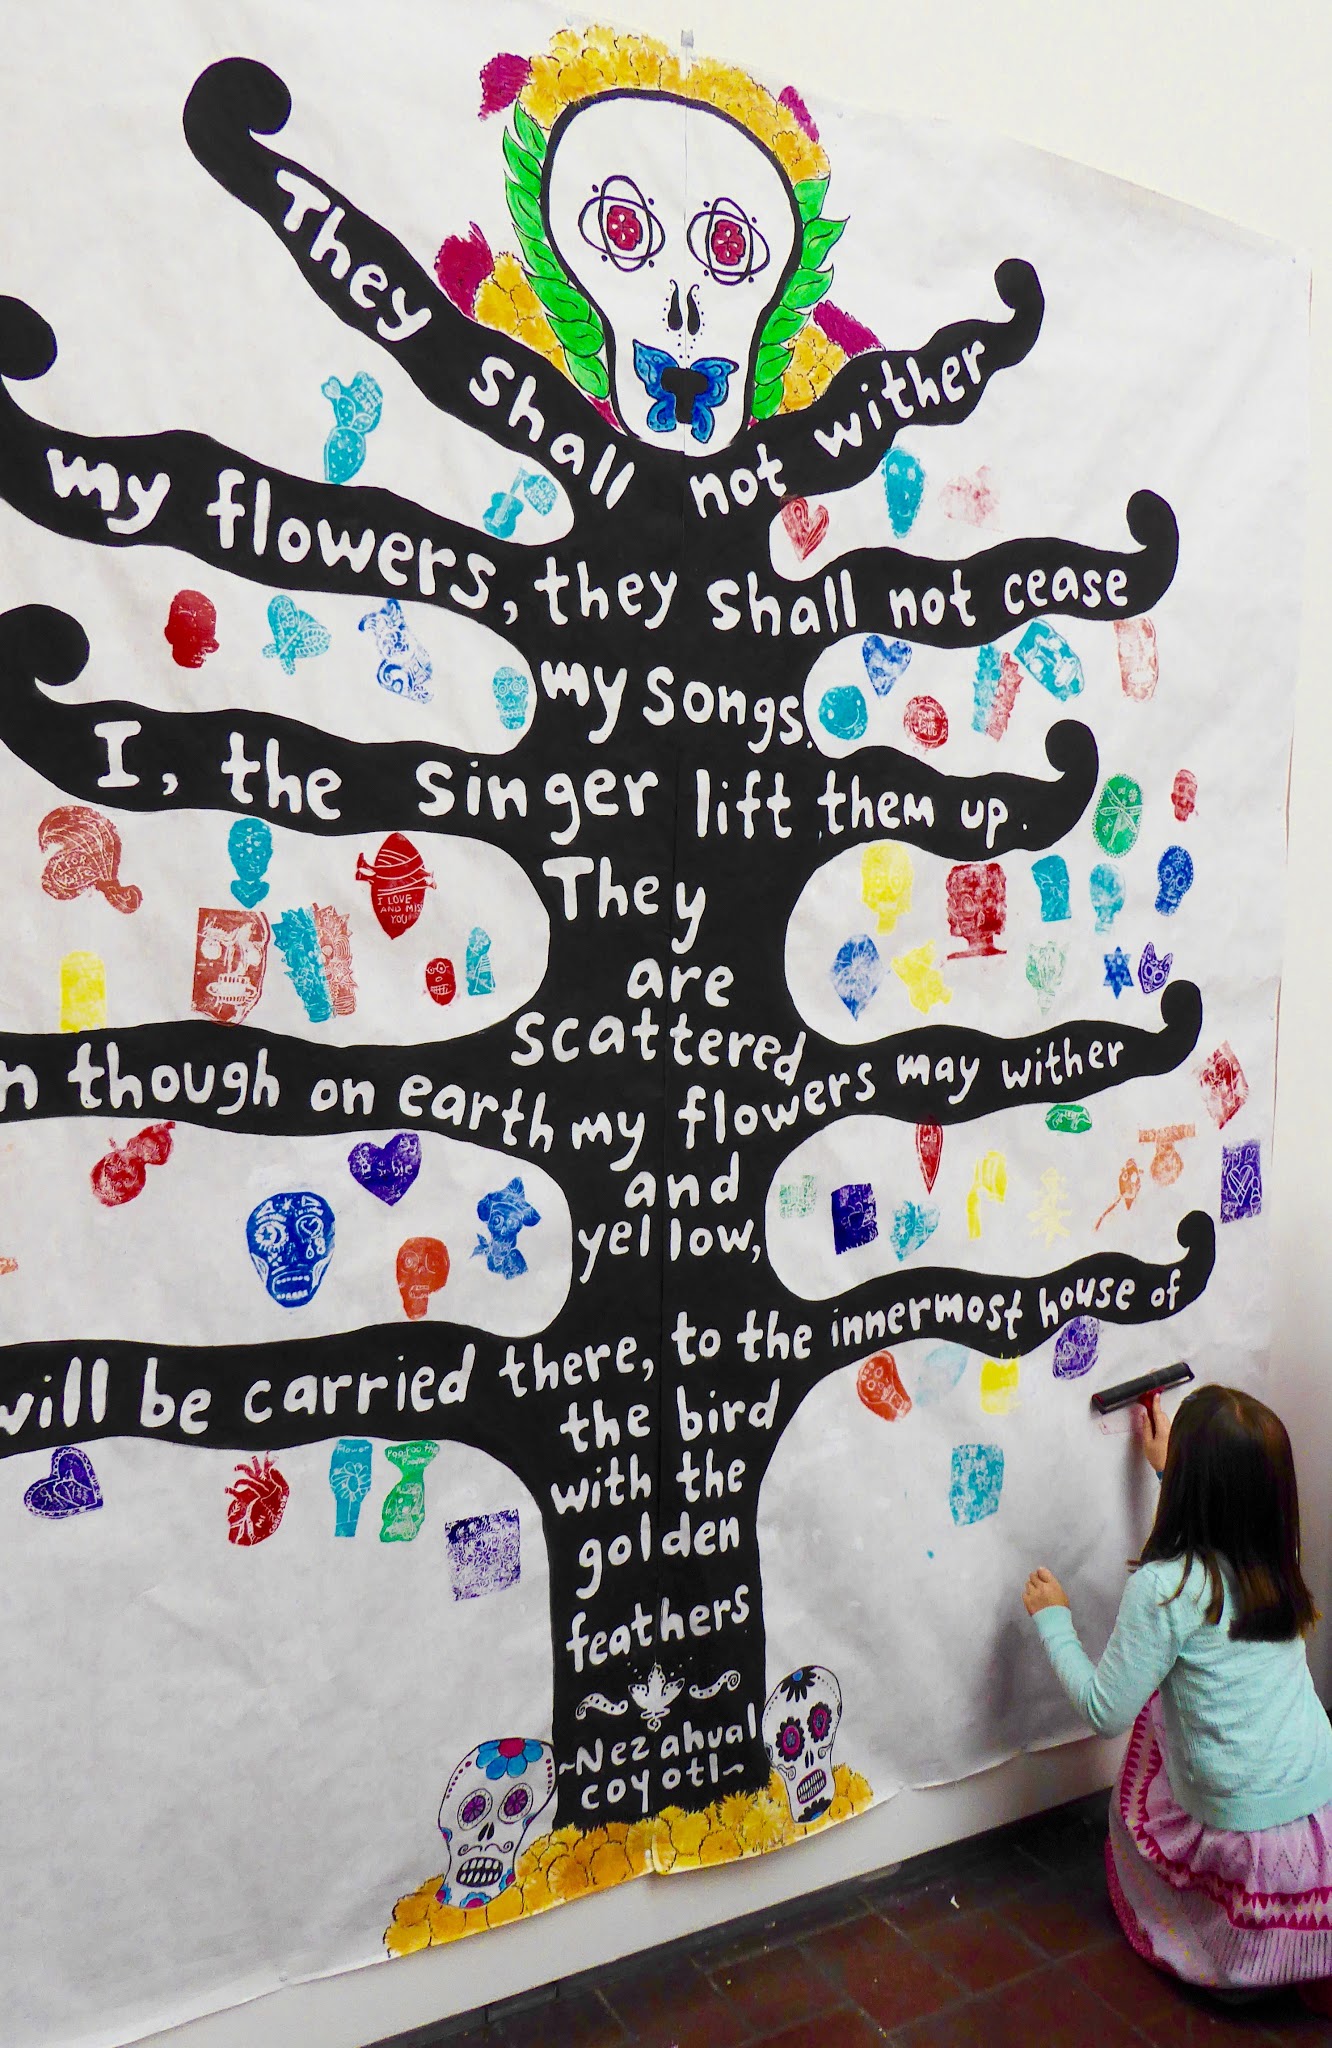 They shall not wither
my flowers, they shall not cease
my songs.
I, the singer lift them up.
They
are
scattered
n though on earth my flowers may wither
and
yellow,
will be carried there, to the innermost house of
the bird
with the
golden
feathers
~Nezahual
coyotl~
I LOVE
AND MISS
YOU
Flower